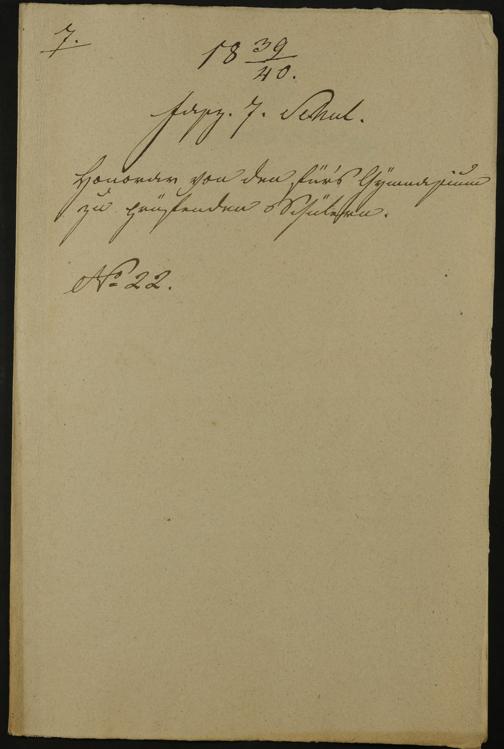 7.
18 39/40.
Fasz. 7. Schul.
Honorar von den für's Gymnasium
zu prüfenden Schülern.
No 22.